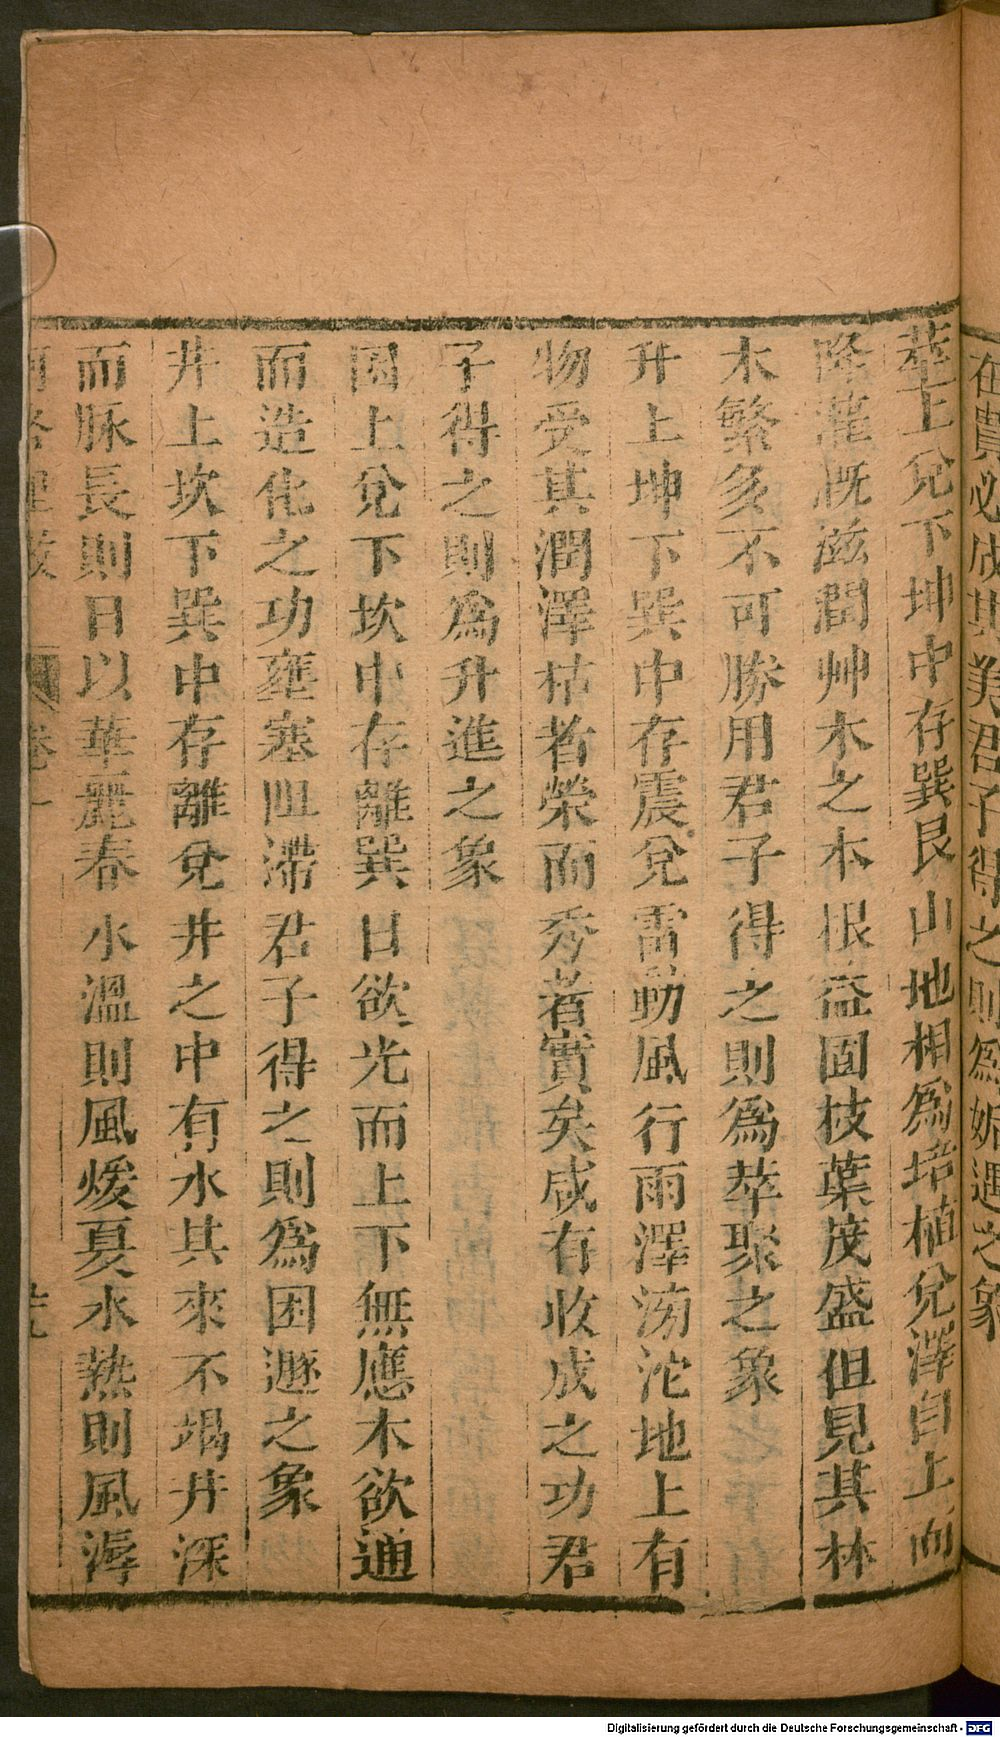 在貴必成其美君子得之則為姤遇之象
萃上兌下坤中存巽艮山地相為培植兌澤自上而
降灌溉滋潤艸木之本根益固枝葉茂盛但見其林
木繁多不可勝用君子得之則為萃聚之象
升上坤下巽中存震兌雷動風行雨澤滂沱地上有
物受其潤澤枯者榮而秀者實矣咸有收成之功君
子得之則為升進之象
困上兌下坎中存離巽日欲光而上下無應木欲通
而造化之功壅塞阻滯君子得之則為困遯之象
井上坎下巽中存離兌井之中有水其來不竭井深
而脉長則日以華麗春水溫則風煖夏水熱則風溽
卷一
Digitalisierung gefördert durch die Deutsche Forschungsgemeinschaft - DFG